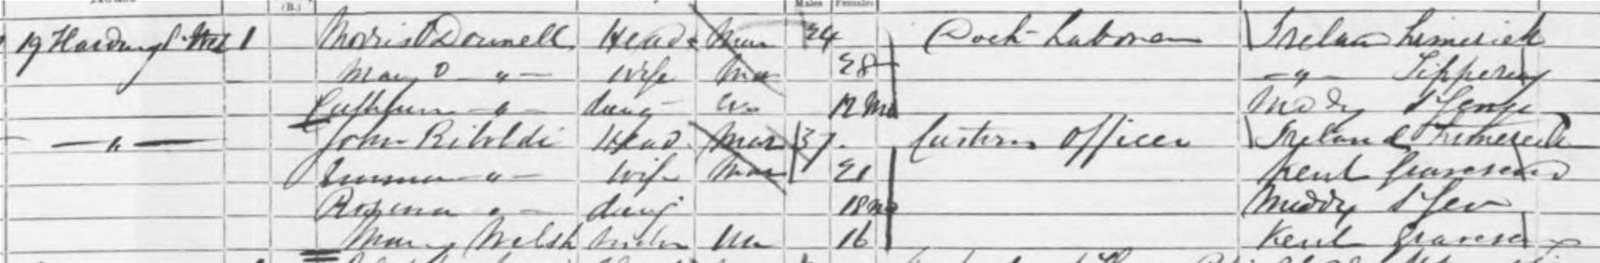 (B.) Males Females
19 Harding St West 1 Morris O Donnell Head Mar 24 Dock Laborer Ireland Limerick
Mary O -"- Wife Mar 28 -"- Tipperary
-"- daug 12 Mo St George
-"- John Riboldi Head Mar 37 Customs Officer Ireland Limerick
-"- Wife Mar 21 Kent Gravesend
Rosina -"- daug 18 mo Middx St Geo
Mary Welsh Un 16 Kent Gravesend